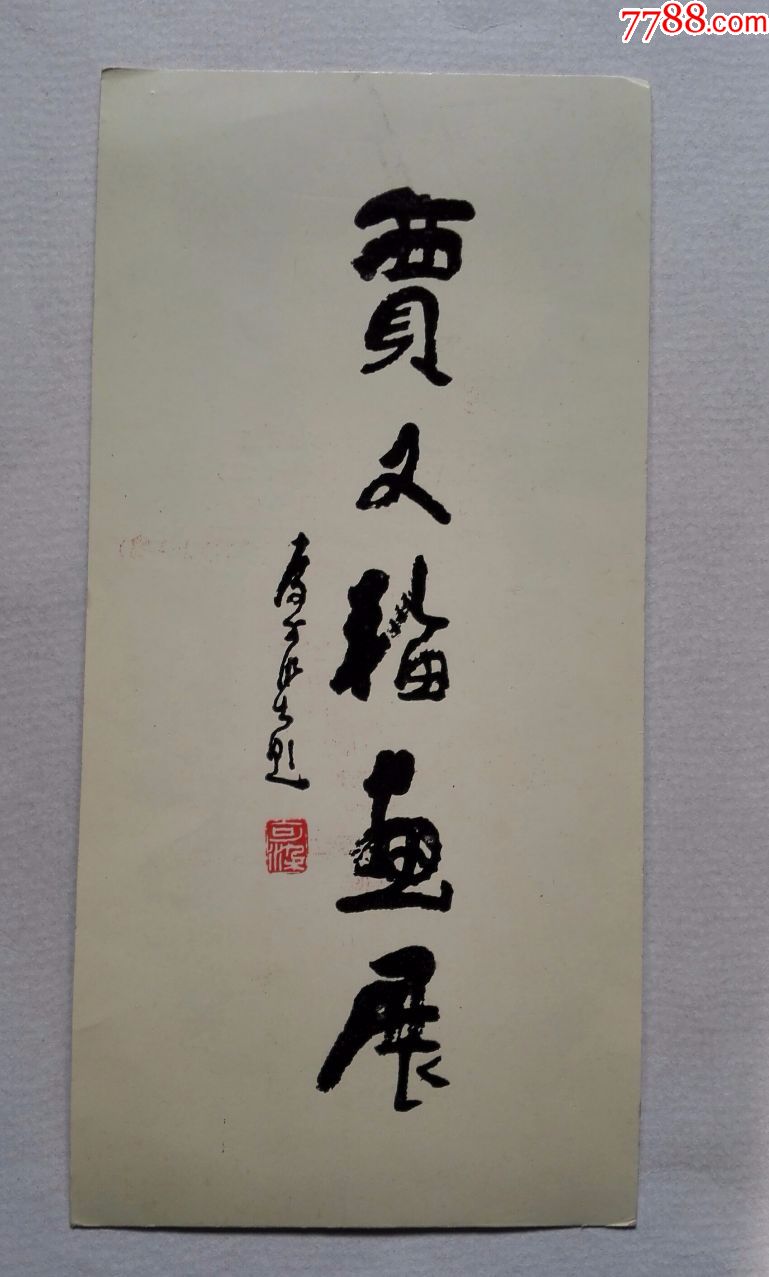 7788.com
賈又福畫展
可染